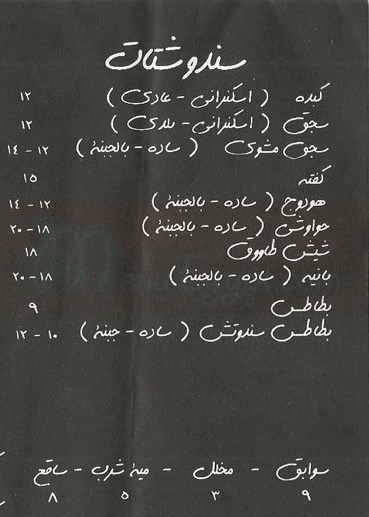 سندوشتات
كبده ( اسكندرانى - عادى ) ١٢
سجق ( اسكندرانى - بلدى ) ١٢
سجق مشوى ( ساده - بالجبنة ) ١٢ - ١٤
كفته ١٥
هوردوج ( ساده - بالجبنة ) ١٢ - ١٤
حواوشى ( ساده - بالجبنة ) ١٨ - ٢٠
شيش طاووق ١٨
بانيه ( ساده - بالجبنة ) ١٨ - ٢٠
بطاطس ٩
بطاطس سندوتش ( ساده - جبنة ) ١٠ - ١٢
سوابق - مخلل - مية شرب - ساقع
٩ ٣ ٥ ٨